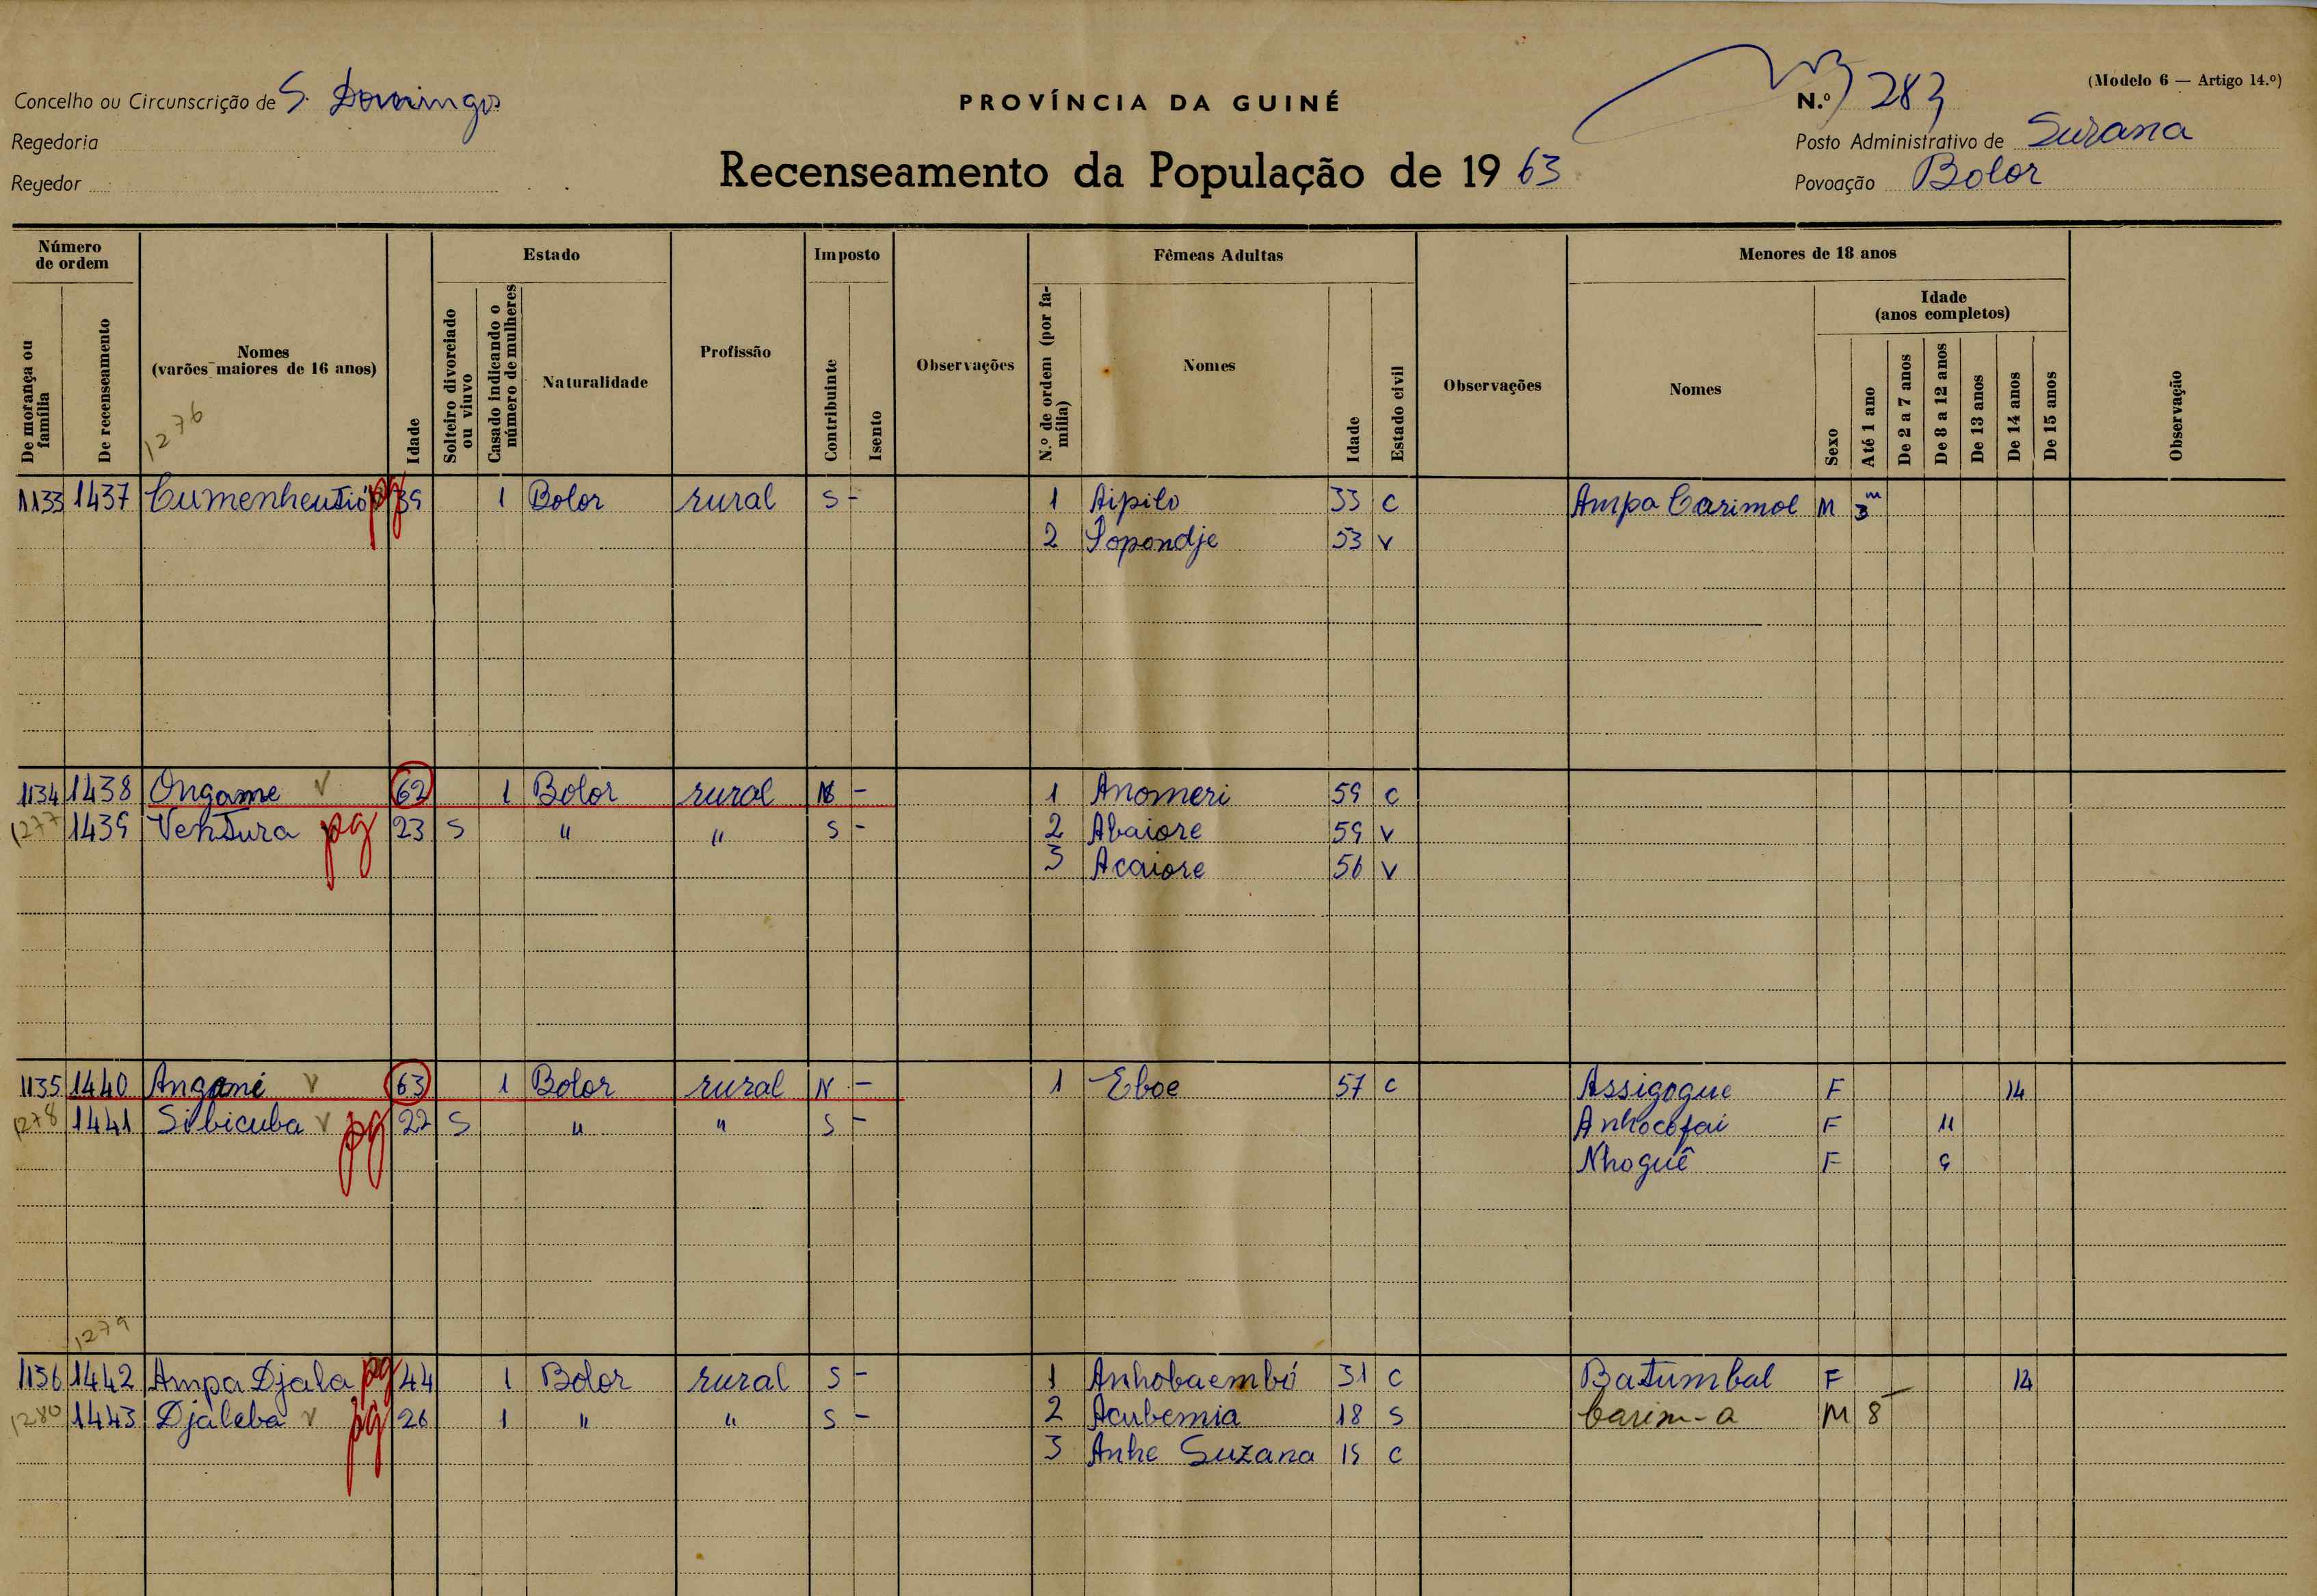 (Modelo 6 — Artigo 14.º)
Concelho ou Circunscrição de S. Domingos
PROVÍNCIA DA GUINÉ
N.º 283
Regedoria
Posto Administrativo de Suzana
Regedor
Recenseamento da População de 1963
Povoação Bolor
Número de ordem
Estado
Imposto
Fêmeas Adultas
Menores de 18 anos
Idade (anos completos)
De morança ou família
De recenseamento
Nomes (varões maiores de 16 anos)
Idade
Solteiro divorciado ou viuvo
Casado indicando o número de mulheres
Naturalidade
Profissão
Contribuinte
Isento
Observações
N.º de ordem (por família)
Nomes
Idade
Estado civil
Observações
Nomes
Sexo
Até 1 ano
De 2 a 7 anos
De 8 a 12 anos
De 13 anos
De 14 anos
De 15 anos
Observação
1276
1133 1437 pg 39 1 Bolor rural S - 1 Aipilo 33 C Ampa Carimol M 3 m
2 Sopondje 53 V
1134 1438 Ongame V 62 1 Bolor rural N - 1 Anomeri 59 C
1277 1439 Ventura pg 23 S " " S - 2 Abaiore 59 V
3 Acaiore 56 V
1135 1440 Angami V 63 1 Bolor rural N - 1 Eboe 57 C Assigogue F 14
1278 1441 Sibicuba V pg 22 S " " S - Anhocofai F 11
Nhoguê F 9
1279
1136 1442 Ampa Djala pg 44 1 Bolor rural S - 1 Anhobaembó 31 C Batumbal F 14
1280 1443 Djaleba V pg 26 1 " " S - 2 Acubemia 18 S Carim-a M 8
3 Anhe Suzana 19 C